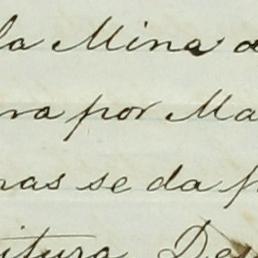 la Mina a
ra por Ma
nas se da p
itura De